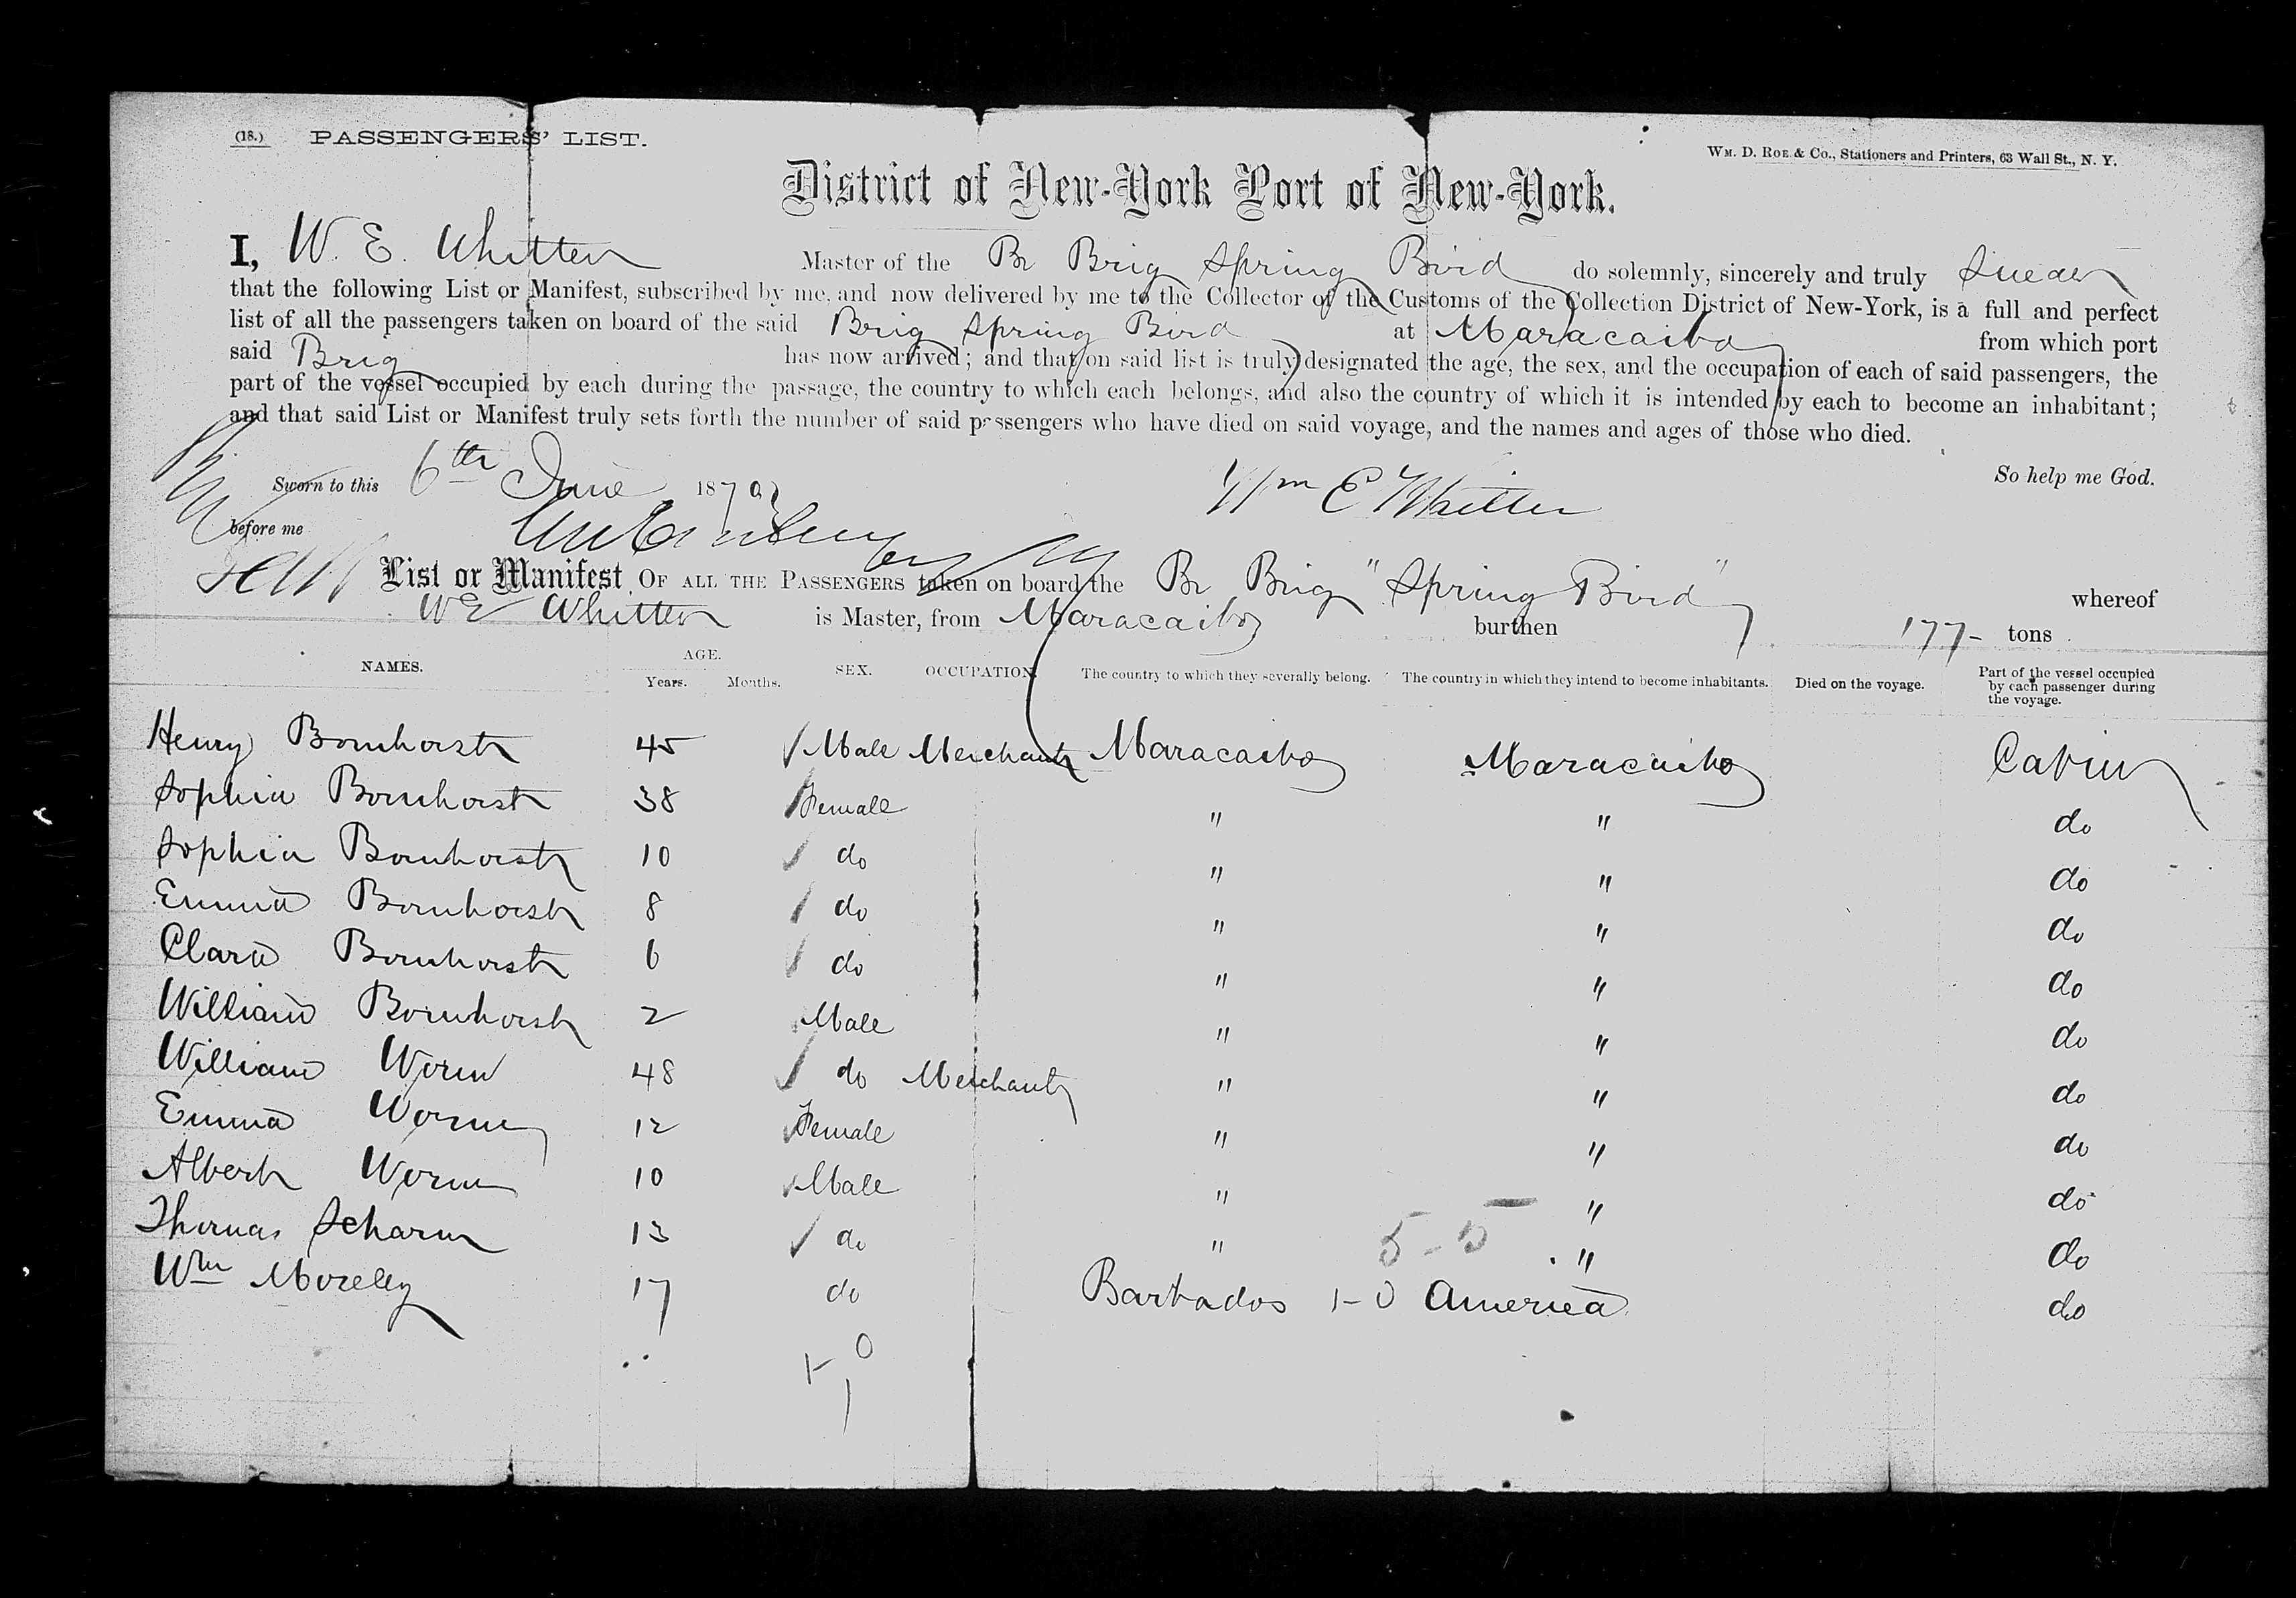 (18.) PASSENGERS' LIST.
WM. D. ROE & CO., Stationers and Printers, 63 Wall St., N. Y.
District of New-York Port of New-York.
I, W. E. Whitten Master of the Br Brig Spring Bird do solemnly, sincerely and truly Swear
that the following List or Manifest, subscribed by me, and now delivered by me to the Collector of the Customs of the Collection District of New-York, is a full and perfect
list of all the passengers taken on board of the said Brig Spring Bird at Maracaibo from which port
said Brig has now arrived; and that on said list is truly designated the age, the sex, and the occupation of each of said passengers, the
part of the vessel occupied by each during the passage, the country to which each belongs, and also the country of which it is intended by each to become an inhabitant;
and that said List or Manifest truly sets forth the number of said passengers who have died on said voyage, and the names and ages of those who died.
So help me God.
Sworn to this 6th June 1879 Wm E Whitten
before me
List or Manifest OF ALL THE PASSENGERS taken on board the Br Brig "Spring Bird" whereof
W E Whitten is Master, from Maracaibo burthen 177- tons
NAMES. AGE. Years. Months. SEX. OCCUPATION. The country to which they severally belong. The country in which they intend to become inhabitants. Died on the voyage. Part of the vessel occupied by each passenger during the voyage.
Henry Bornhorst 45 Male Merchant Maracaibo Maracaibo Cabin
Sophia Bornhorst 38 Female " " do
Sophia Bornhorst 10 do " " do
Emma Bornhorst 8 do " " do
Clara Bornhorst 6 do " " do
William Bornhorst 2 Male " " do
William Worm 48 do Merchant " " do
Emma Worm 12 Female " " do
Albert Worm 10 Male " " do
Thomas Scharn 13 do " 5-5 " do
Wm Mozeley 17 do Barbados 1-0 America do
1-0
1